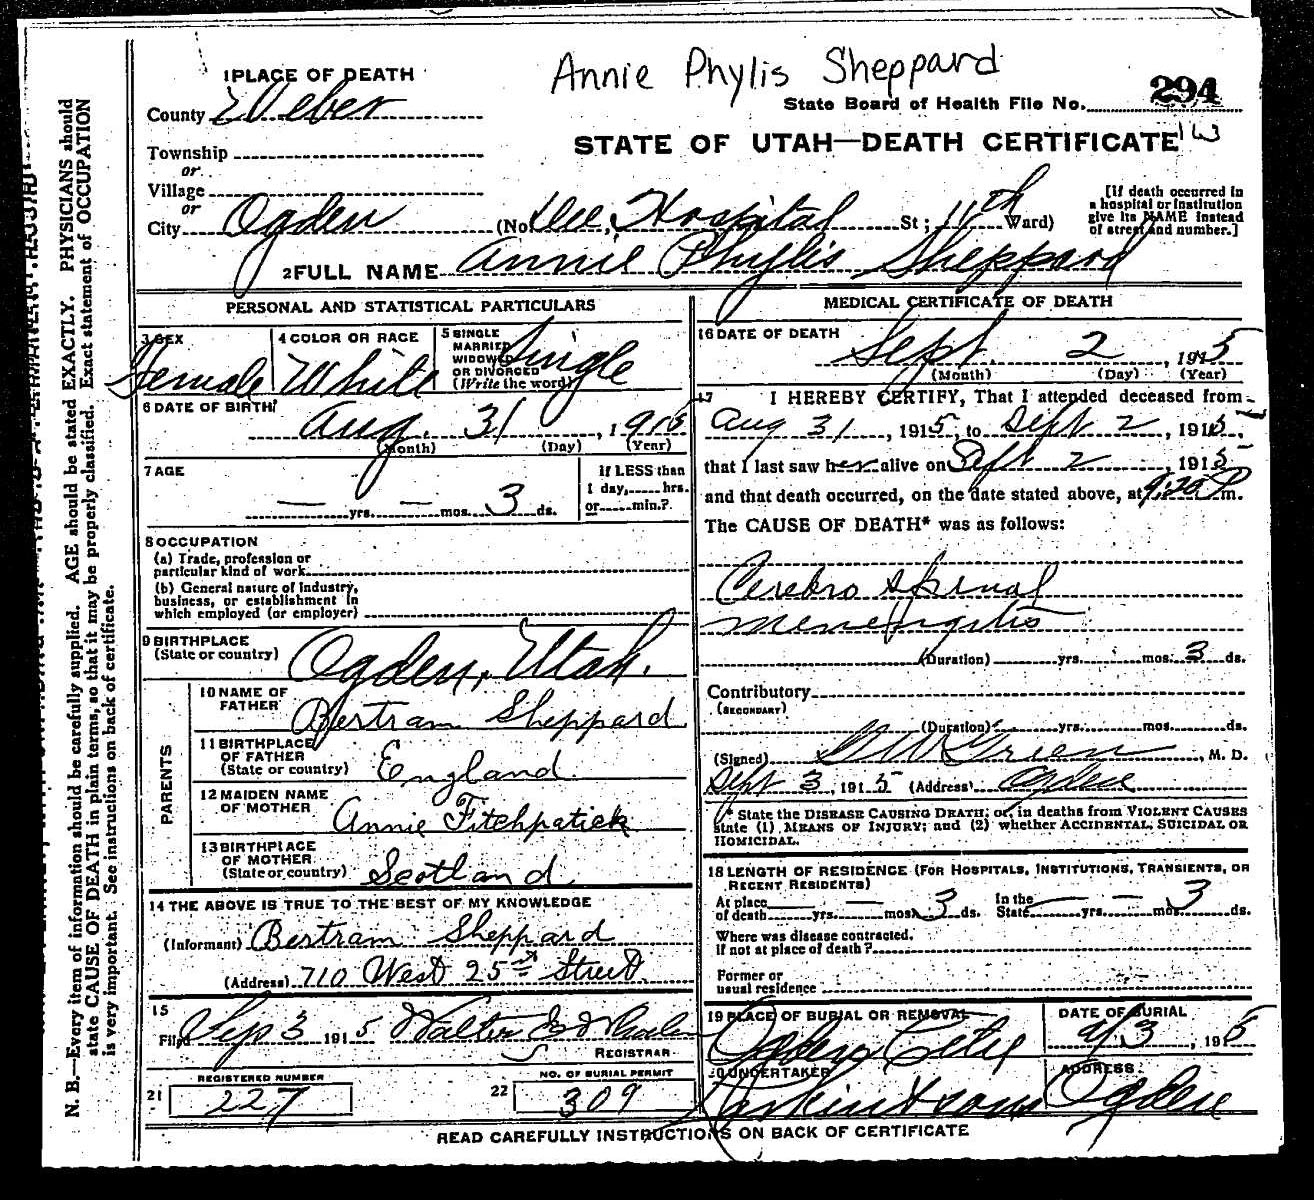 Annie Phylis Sheppard
1 PLACE OF DEATH
County Weber
State Board of Health File No. 294
Township
STATE OF UTAH—DEATH CERTIFICATE
or
Village
or
City Ogden (No. Dee, Hospital St; 11th Ward)
[If death occurred in a hospital or institution give its NAME instead of street and number.]
2 FULL NAME Annie Phylis Sheppard
PERSONAL AND STATISTICAL PARTICULARS
3 SEX Female
4 COLOR OR RACE White
5 SINGLE MARRIED WIDOWED OR DIVORCED (Write the word) Single
6 DATE OF BIRTH Aug. 31, 1915
(Month) (Day) (Year)
7 AGE
— yrs. — mos. 3 ds.
If LESS than 1 day, hrs. or min.?
8 OCCUPATION
(a) Trade, profession or particular kind of work
(b) General nature of industry, business, or establishment in which employed (or employer)
9 BIRTHPLACE (State or country) Ogden, Utah.
PARENTS
10 NAME OF FATHER Bertram Sheppard
11 BIRTHPLACE OF FATHER (State or country) England
12 MAIDEN NAME OF MOTHER Annie Fitchpatick
13 BIRTHPLACE OF MOTHER (State or country) Scotland
14 THE ABOVE IS TRUE TO THE BEST OF MY KNOWLEDGE
(Informant) Bertram Sheppard
(Address) 710 West 25 Street
15
Filed Sep 3 1915 Walter
REGISTRAR
21 REGISTERED NUMBER 227
22 NO. OF BURIAL PERMIT 309
MEDICAL CERTIFICATE OF DEATH
16 DATE OF DEATH
Sept. 2, 1915
(Month) (Day) (Year)
17 I HEREBY CERTIFY, That I attended deceased from
Aug 31, 1915, to Sept 2, 1915,
that I last saw her alive on Sept 2, 1915
and that death occurred, on the date stated above, at 9:20 P m.
The CAUSE OF DEATH* was as follows:
Cerebro spinal
menengitis
(Duration) yrs. mos. 3 ds.
Contributory
(SECONDARY)
(Duration) yrs. mos. ds.
(Signed) Green, M. D.
Sept 3, 1915 (Address) Ogden
* State the DISEASE CAUSING DEATH; or, in deaths from VIOLENT CAUSES
state (1) MEANS OF INJURY; and (2) whether ACCIDENTAL, SUICIDAL OR
HOMICIDAL.
18 LENGTH OF RESIDENCE (FOR HOSPITALS, INSTITUTIONS, TRANSIENTS, OR
RECENT RESIDENTS)
At place of death yrs. — mos. 3 ds. In the State — yrs. — mos. 3 ds.
Where was disease contracted,
if not at place of death?
Former or
usual residence
19 PLACE OF BURIAL OR REMOVAL Ogden City
DATE OF BURIAL 9/3, 1915
20 UNDERTAKER
ADDRESS Ogden
READ CAREFULLY INSTRUCTIONS ON BACK OF CERTIFICATE
N. B.—Every item of information should be carefully supplied. AGE should be stated EXACTLY. PHYSICIANS should
state CAUSE OF DEATH in plain terms, so that it may be properly classified. Exact statement of OCCUPATION
is very important. See instructions on back of certificate.